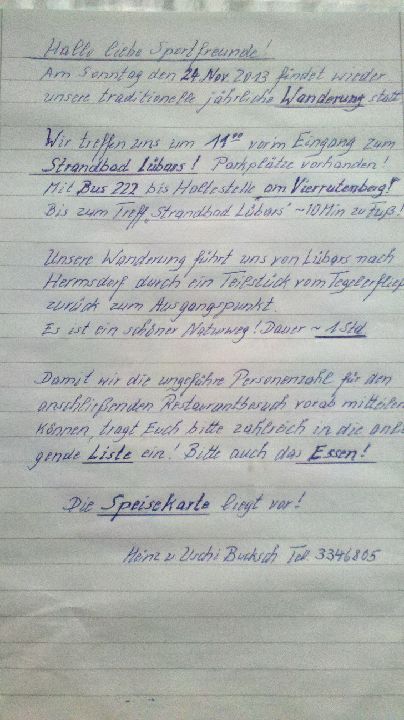 Hallo liebe Sportfreunde!
Am Sonntag den 24. Nov 2013 findet wieder
unsere traditionelle jährliche Wanderung statt
Wir treffen uns um 11⁰⁰ vorm Eingang zum
Strandbad Lübars! Parkplätze vorhanden!
Mit Bus 222 bis Haltestelle am Vierrutenberg!
Bis zum Treff „Strandbad Lübars" ~ 10 Min zu Fuß!
Unsere Wanderung führt uns von Lübars nach
Hermsdorf durch ein Teilstück vom Tegelerfließ
zurück zum Ausgangspunkt.
Es ist ein schöner Naturweg! Dauer ~ 1 Std
Damit wir die ungefähre Personenzahl für den
anschließenden Restaurantbesuch vorab mitteilen
können, tragt Euch bitte zahlreich in die anlie
gende Liste ein! Bitte auch das Essen!
Die Speisekarte liegt vor!
Heinz u Uschi Tel. 3346805